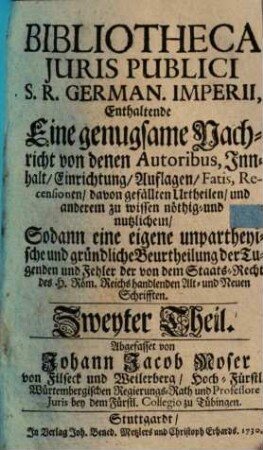 BIBLIOTHECA
JURIS PUBLICI
S. R. GERMAN. IMPERII,
Enthaltende
Eine genugsame Nach-
richt von denen Autoribus, Inn-
halt/ Einrichtung/ Auflagen/ Fatis, Re-
censionen/ davon gefällten Urtheilen/ und
anderem zu wissen nöthig- und
nutzlichem/
Sodann eine eigene unpartheyi-
sche und gründliche Beurtheilung der Tu-
genden und Fehler der von dem Staats-Recht
des H. Röm. Reichs handlenden Alt- und Neuen
Schrifften.
Zweyter Theil.
Abgefasset von
Johann Jacob Moser
von Filseck und Weilerberg/ Hoch-Fürstl.
Würtembergischen Regierungs-Rath und Professore
Juris bey dem Fürstl. Collegio zu Tübingen.
Stuttgardt/
In Verlag Joh. Bened. Metzlers und Christoph Erhards. 1730.